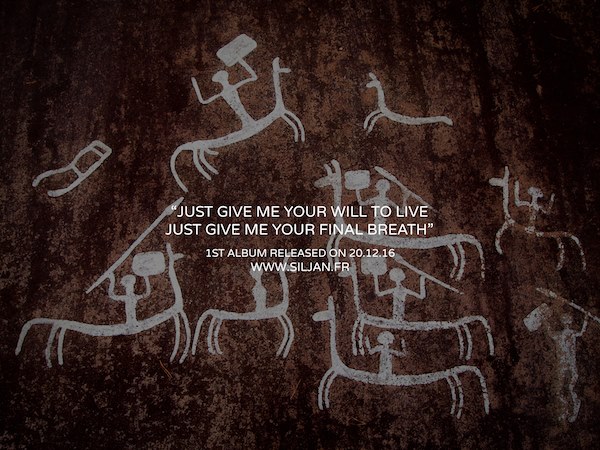 “JUST GIVE ME YOUR WILL TO LIVE
JUST GIVE ME YOUR FINAL BREATH”
1ST ALBUM RELEASED ON 20.12.16
WWW.SILJAN.FR